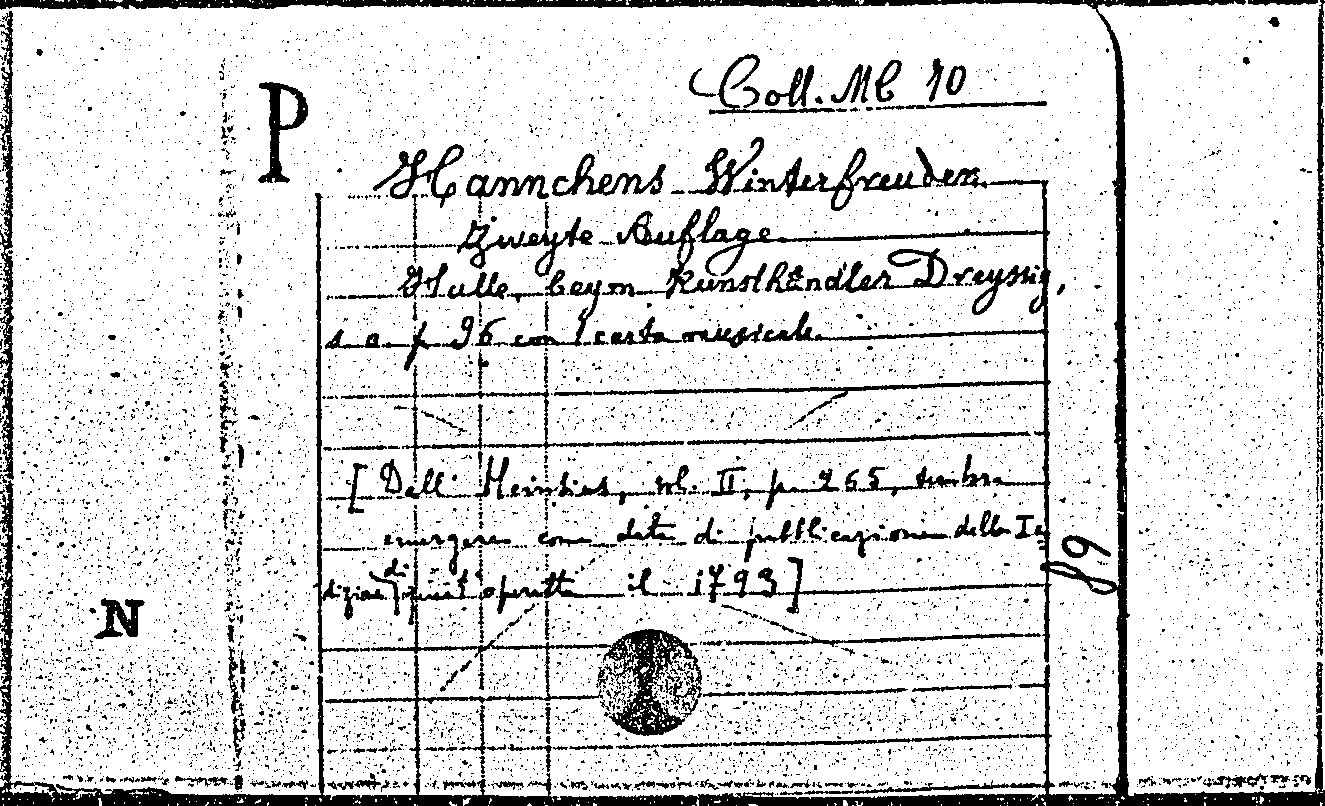 P
Coll. MC 10
Hannchens Winterfreuden
Zweyte Auflage
Halle, beym Kunsthändler Dreyssig,
s. a. p 96 con 1 carta musicale.
[Dall' Heinsius, vol. II, p. 265, sembra
emergere come data di pubblicazione della Ie
dizione di quest' operetta il 1793]
89
N